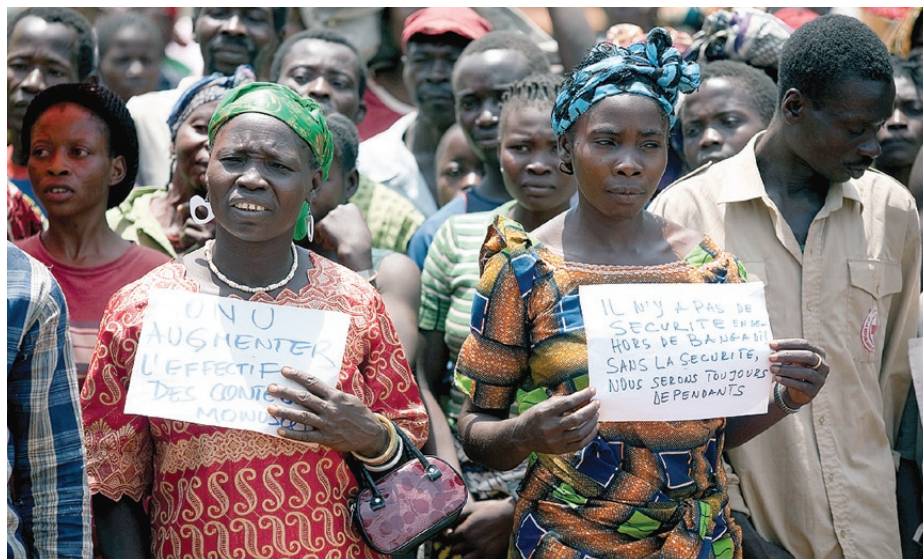 UNU
AUGMENTER
L'EFFECTIF
DES
IL N'Y A PAS DE
SECURITE EN
HORS DE BANGADI
SANS LA SECURITE,
NOUS SERONS TOUJOURS
DEPENDANTS